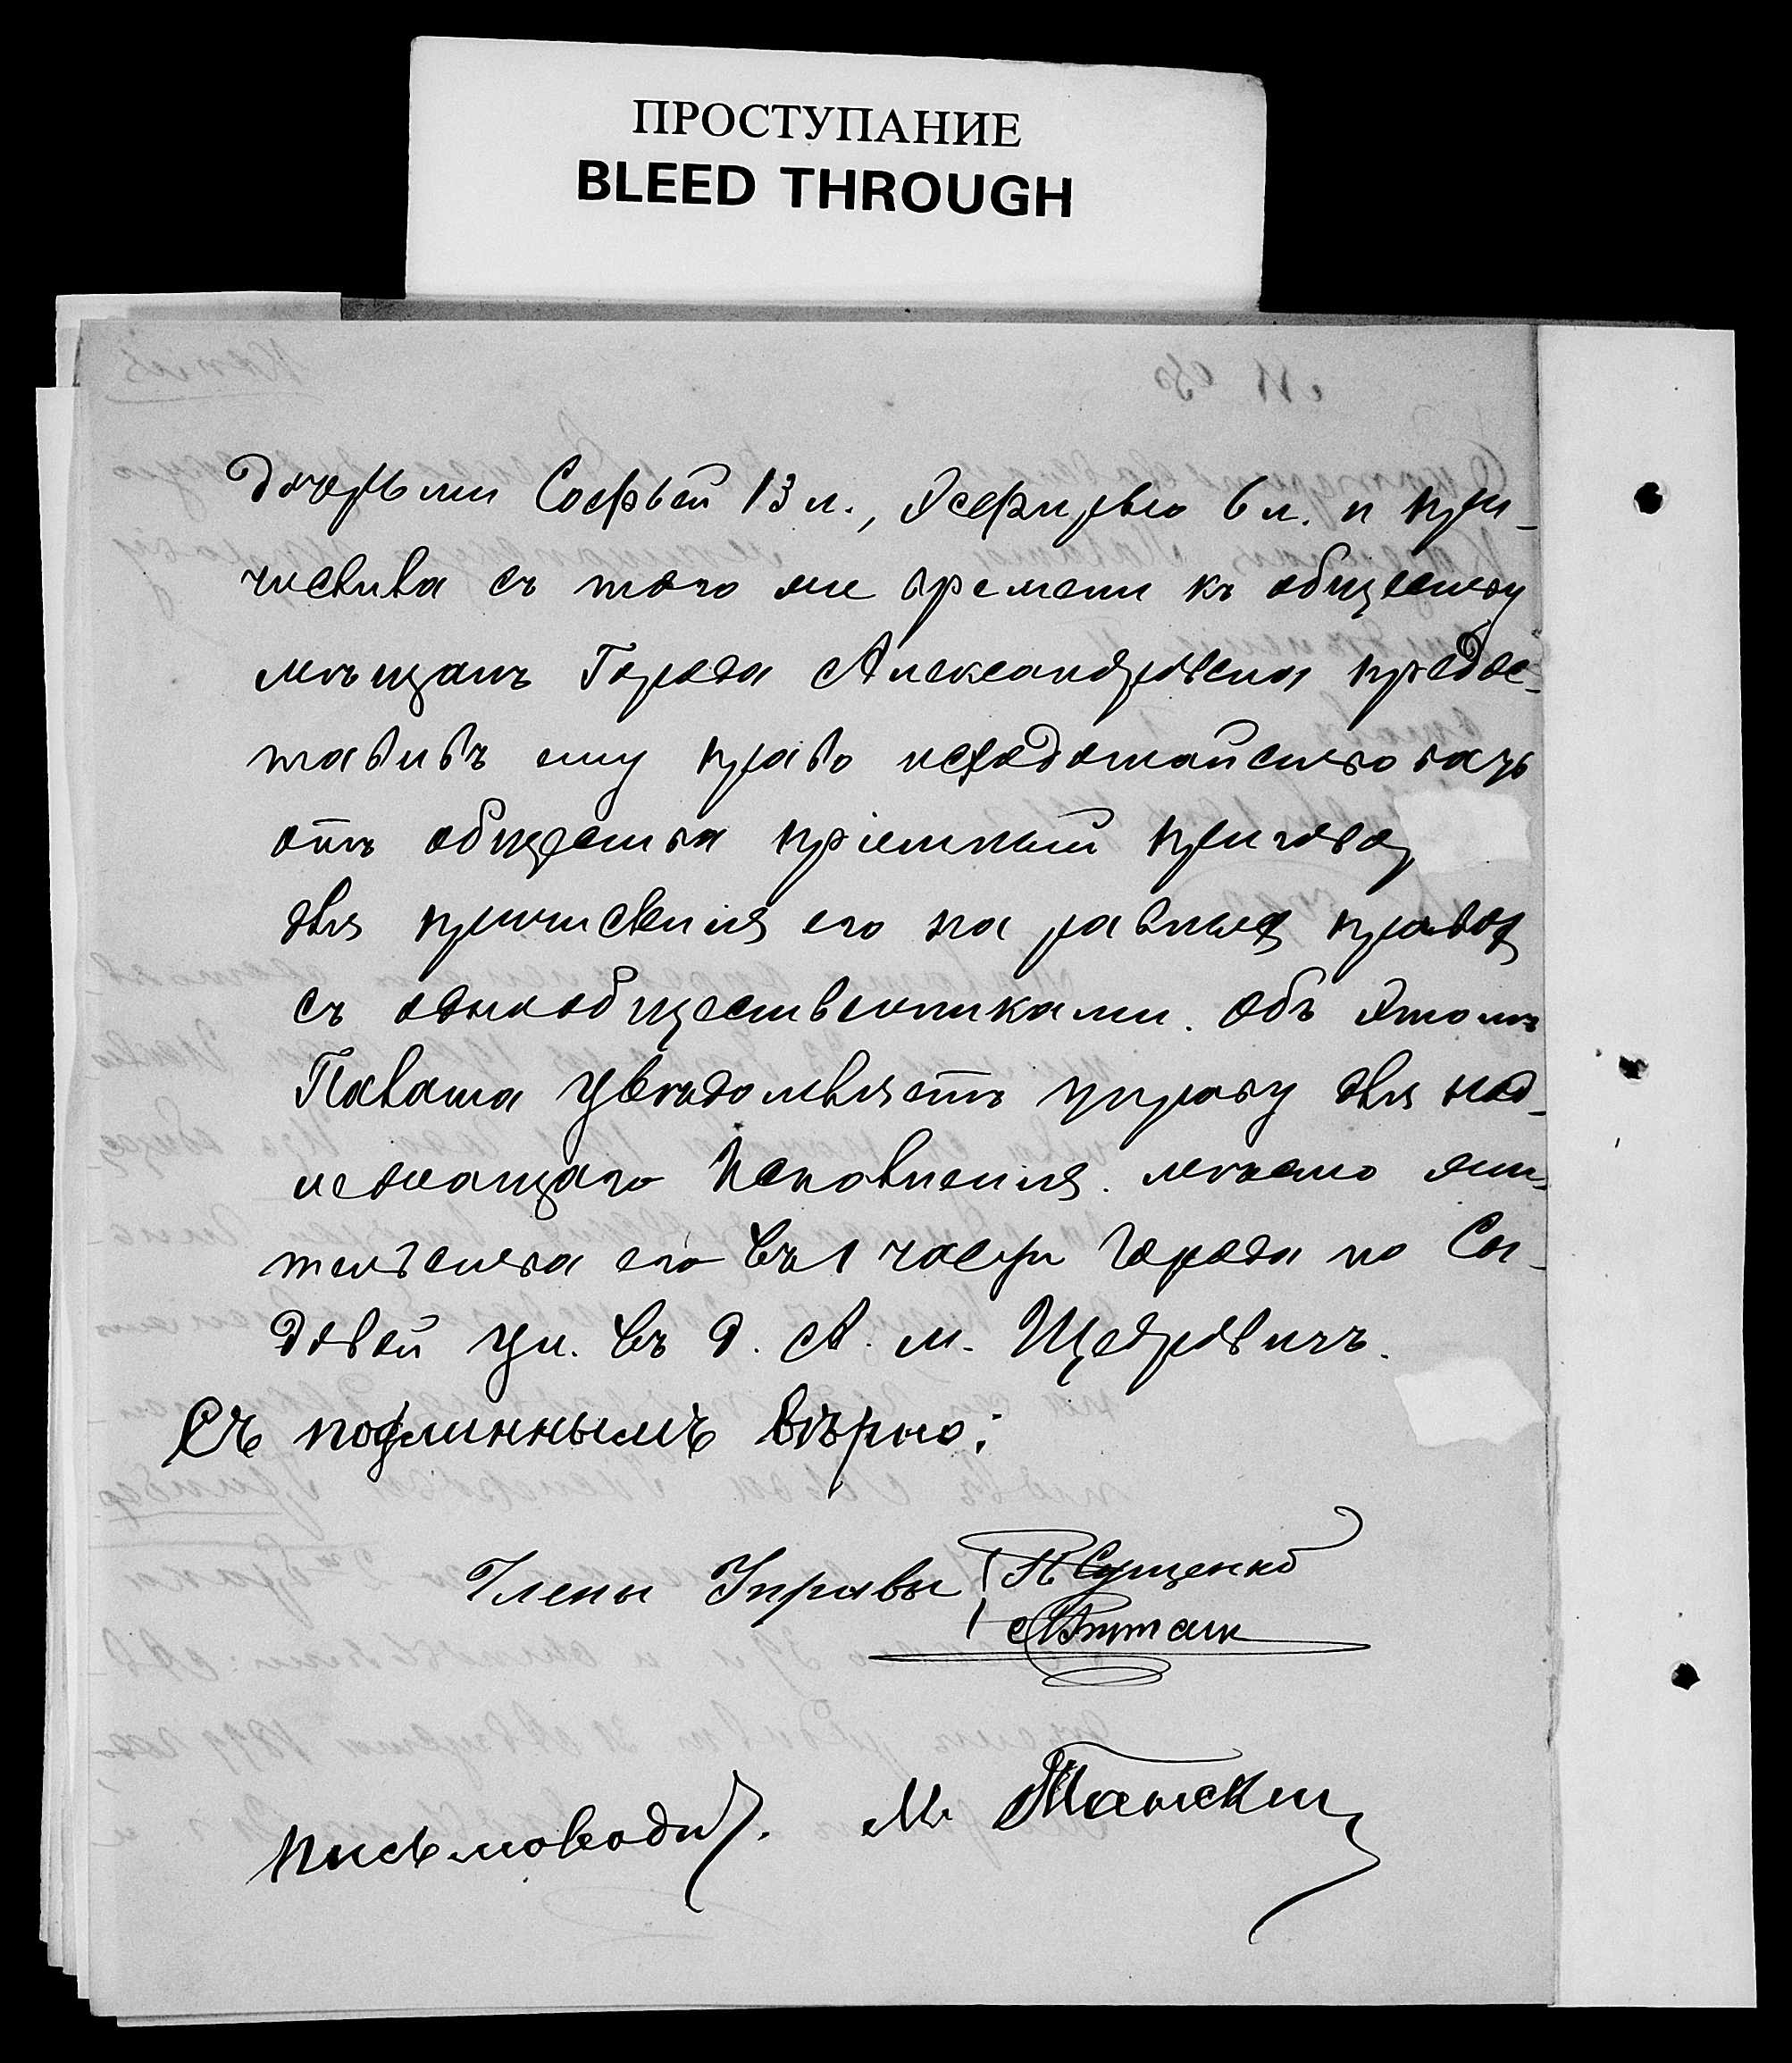 ПРОСТУПАНИЕ
BLEED THROUGH
дочерьми Софьей 13 л., Эсфирью 6 л. и при-
числила съ того же времени къ обществу
мѣщанъ Города Александровска предос-
тавивъ ему право исходатайствовать
отъ общества пріемный приговор
для причисленія его на равныхъ правах
съ однообщественниками. Объ этомъ
Палата увѣдомляетъ управу для над-
лежащаго исполненія. мѣсто жи-
тельства его въ 1 части города по Са-
довой ул. въ д. А. М. Щедровичъ.
Съ подлиннымъ вѣрно:
Члены Управы Сущенко
письмоводи. М.